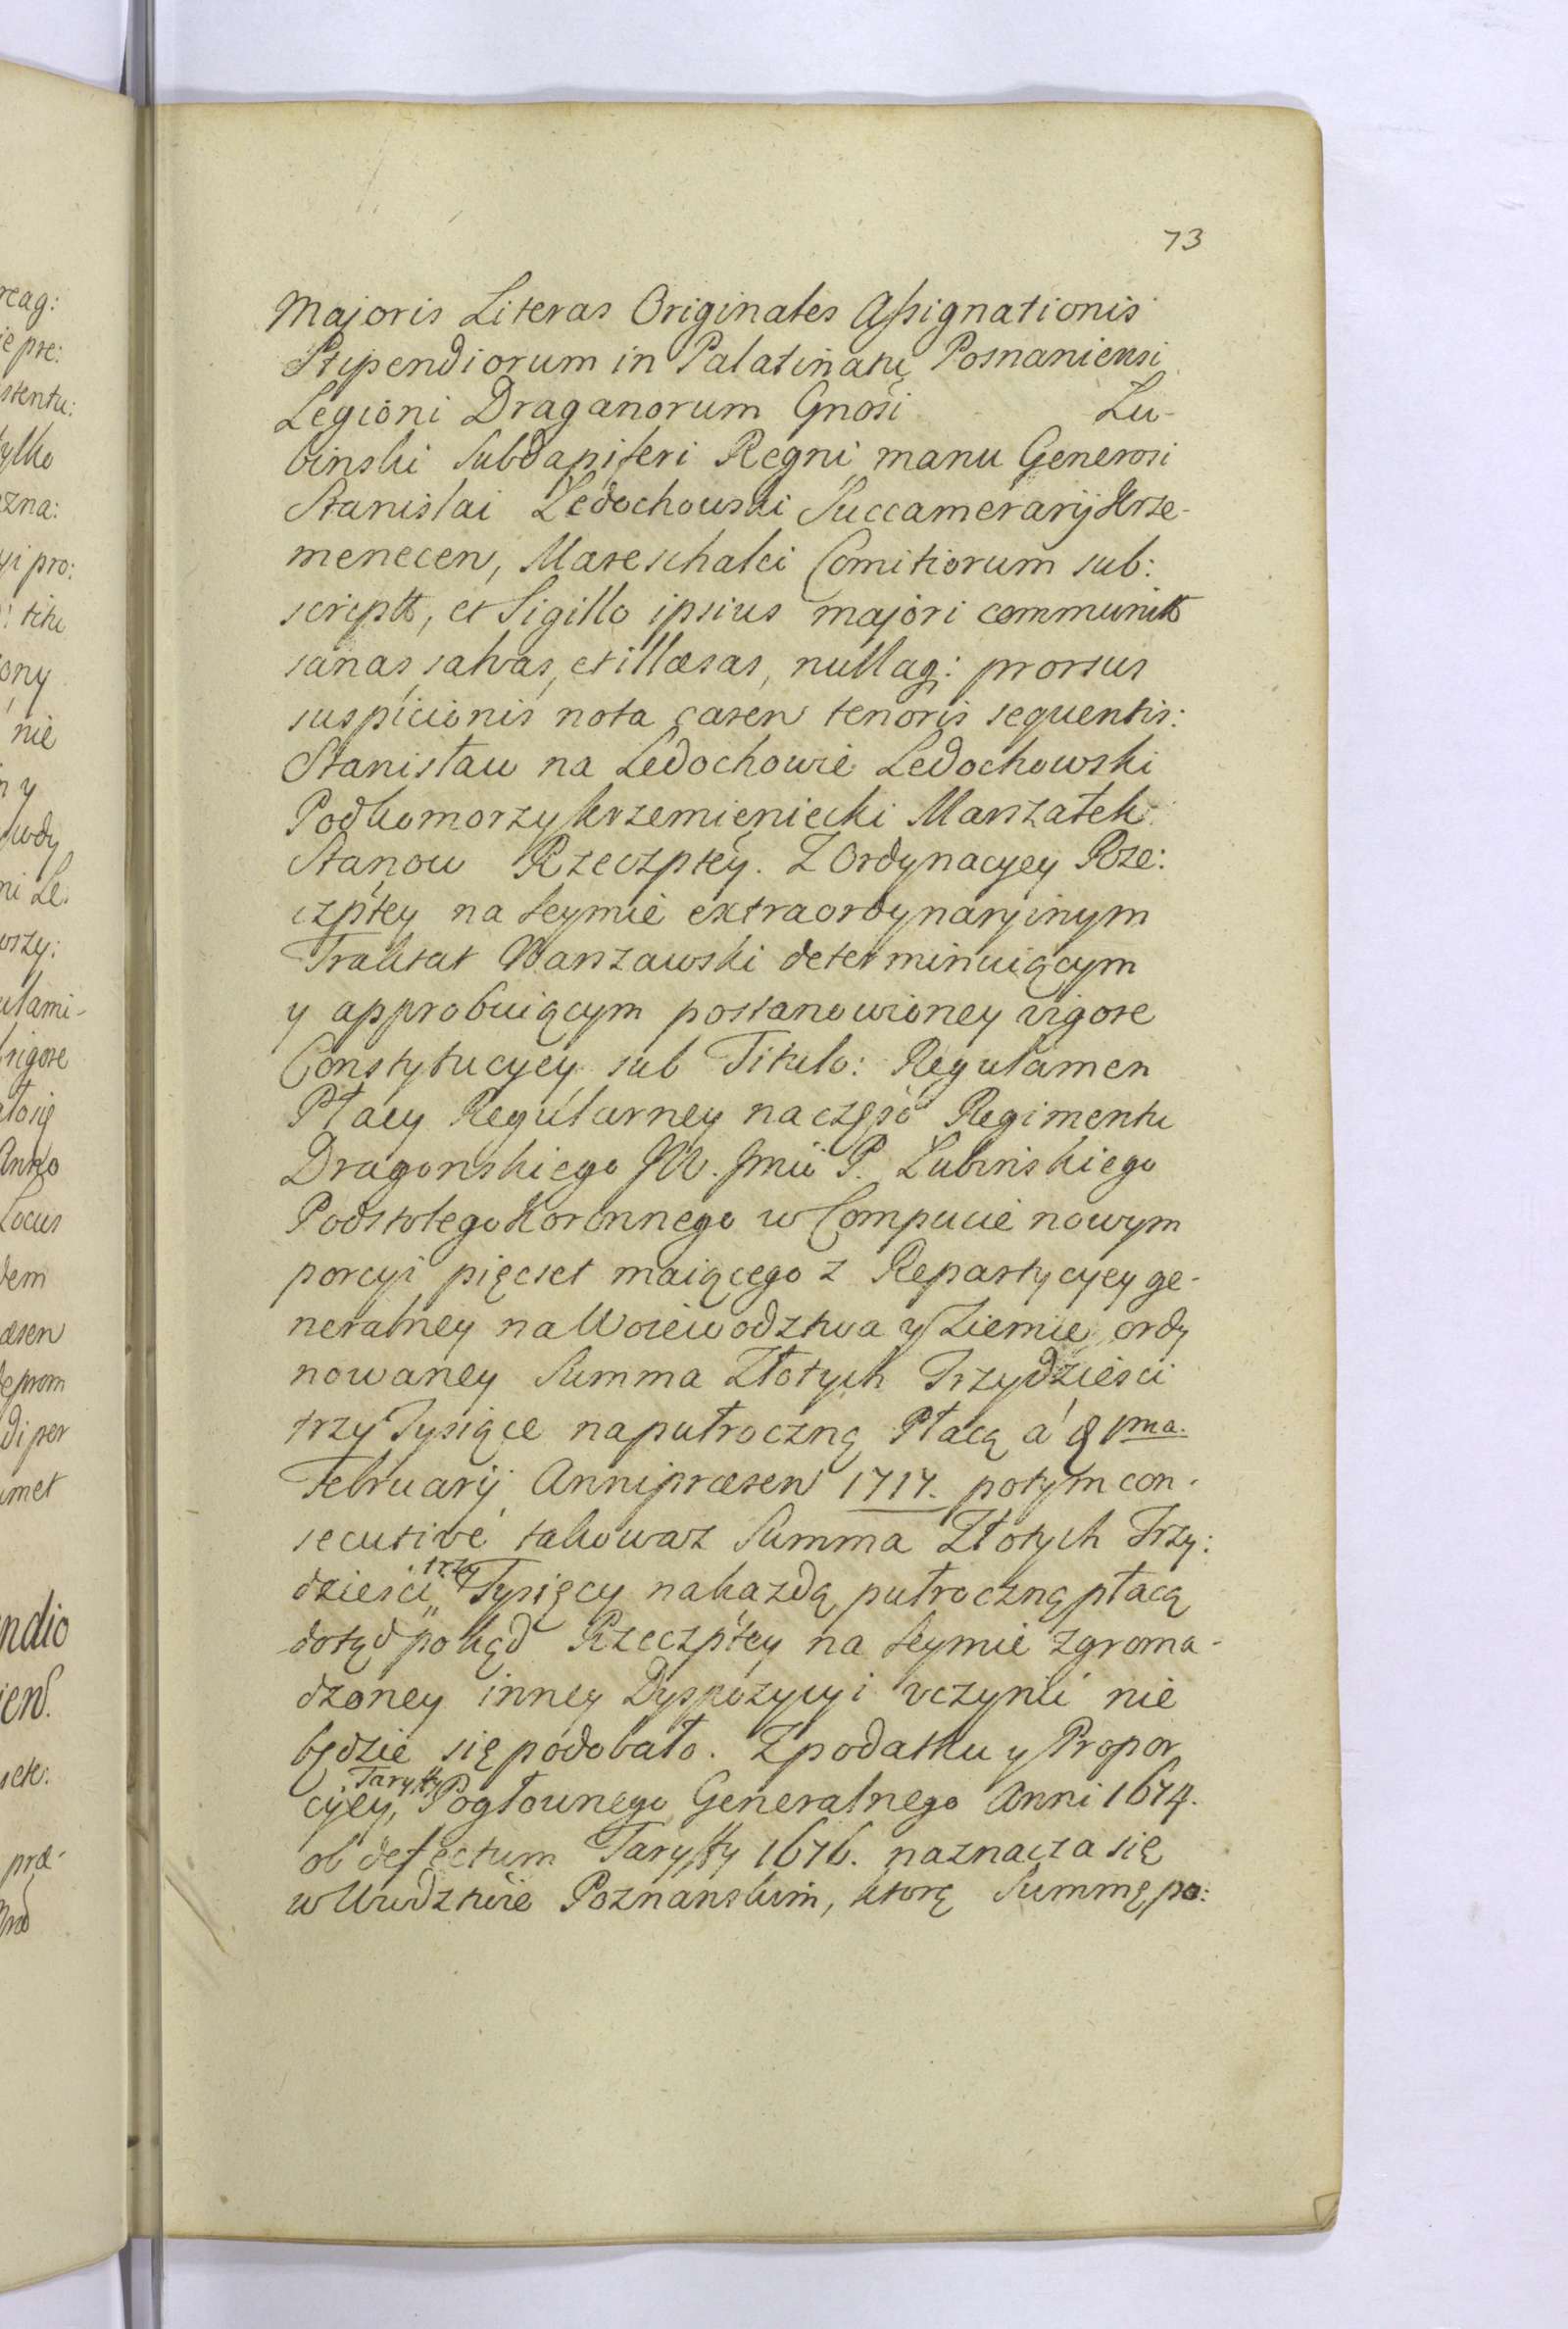 73
Majoris Literas Originales Assignationis
Stipendiorum in Palatinatu Posnaniensi
Legioni Draganorum Gnosi Lu-
binski Subdapiferi Regni manu Generosi
Stanislai Ledochowski Succamerarij Krze-
menecen, Mareschalci Comitiorum sub:
script, et Sigillo ipsius majori communit
sanas, salvas, et illæsas, nullaq: prorsus
suspicionis nota caren tenoris sequentis:
Stanisław na Ledochowie Ledochowski
Podkomorzy krzemieniecki Marszałek
Stanow Rzeczpłey. Z Ordynacyey Rze:
czpłey na Seymie extraordynaryinym
Traktat Warszawski determinuiącym
y approbuiącym postanowioney vigore
Constytucyey sub Titulo: Regulamen
Płacy Regularney na częsc Regimentu
Dragonskiego JW. Jmci P. Lubinskiego
Podstolego Koronnego w Compucie nowym
porcyi pięcset maiącego z Repartycyey ge-
neralney na Woiewodztwa y Ziemie ordy
nowaney Summa Złotych Trzydziesci
trzy Tysiące na pułroczną Płacą a 1ma.
Februarij Anni præsen 1717. potym con-
secutive takowaz Summa Złotych Trzy:
dziesci trzy Tysięcy na kazdą pułroczną płacą
dotąd pokąd Rzeczpłey na Seymie zgroma-
dzoney inney Dyspozycyi uczynić nie
będzie się podobało. Z podatku y Propor
cyey, Taryffy Pogłownego Generalnego Anni 1674.
ob defectum Taryffy 1676. naznacza się
w Wwdztwie Poznanskim, ktorę Summę po:
reag:
ie pre:
stentu:
tylko
czna:
yi pro:
titu
ony
nie
n y
wody
ni Le.
wszy:
ulami-
vigore
ało się
Anno
Locus
dem
æsen
deprom
di per
imet
endio
præ-